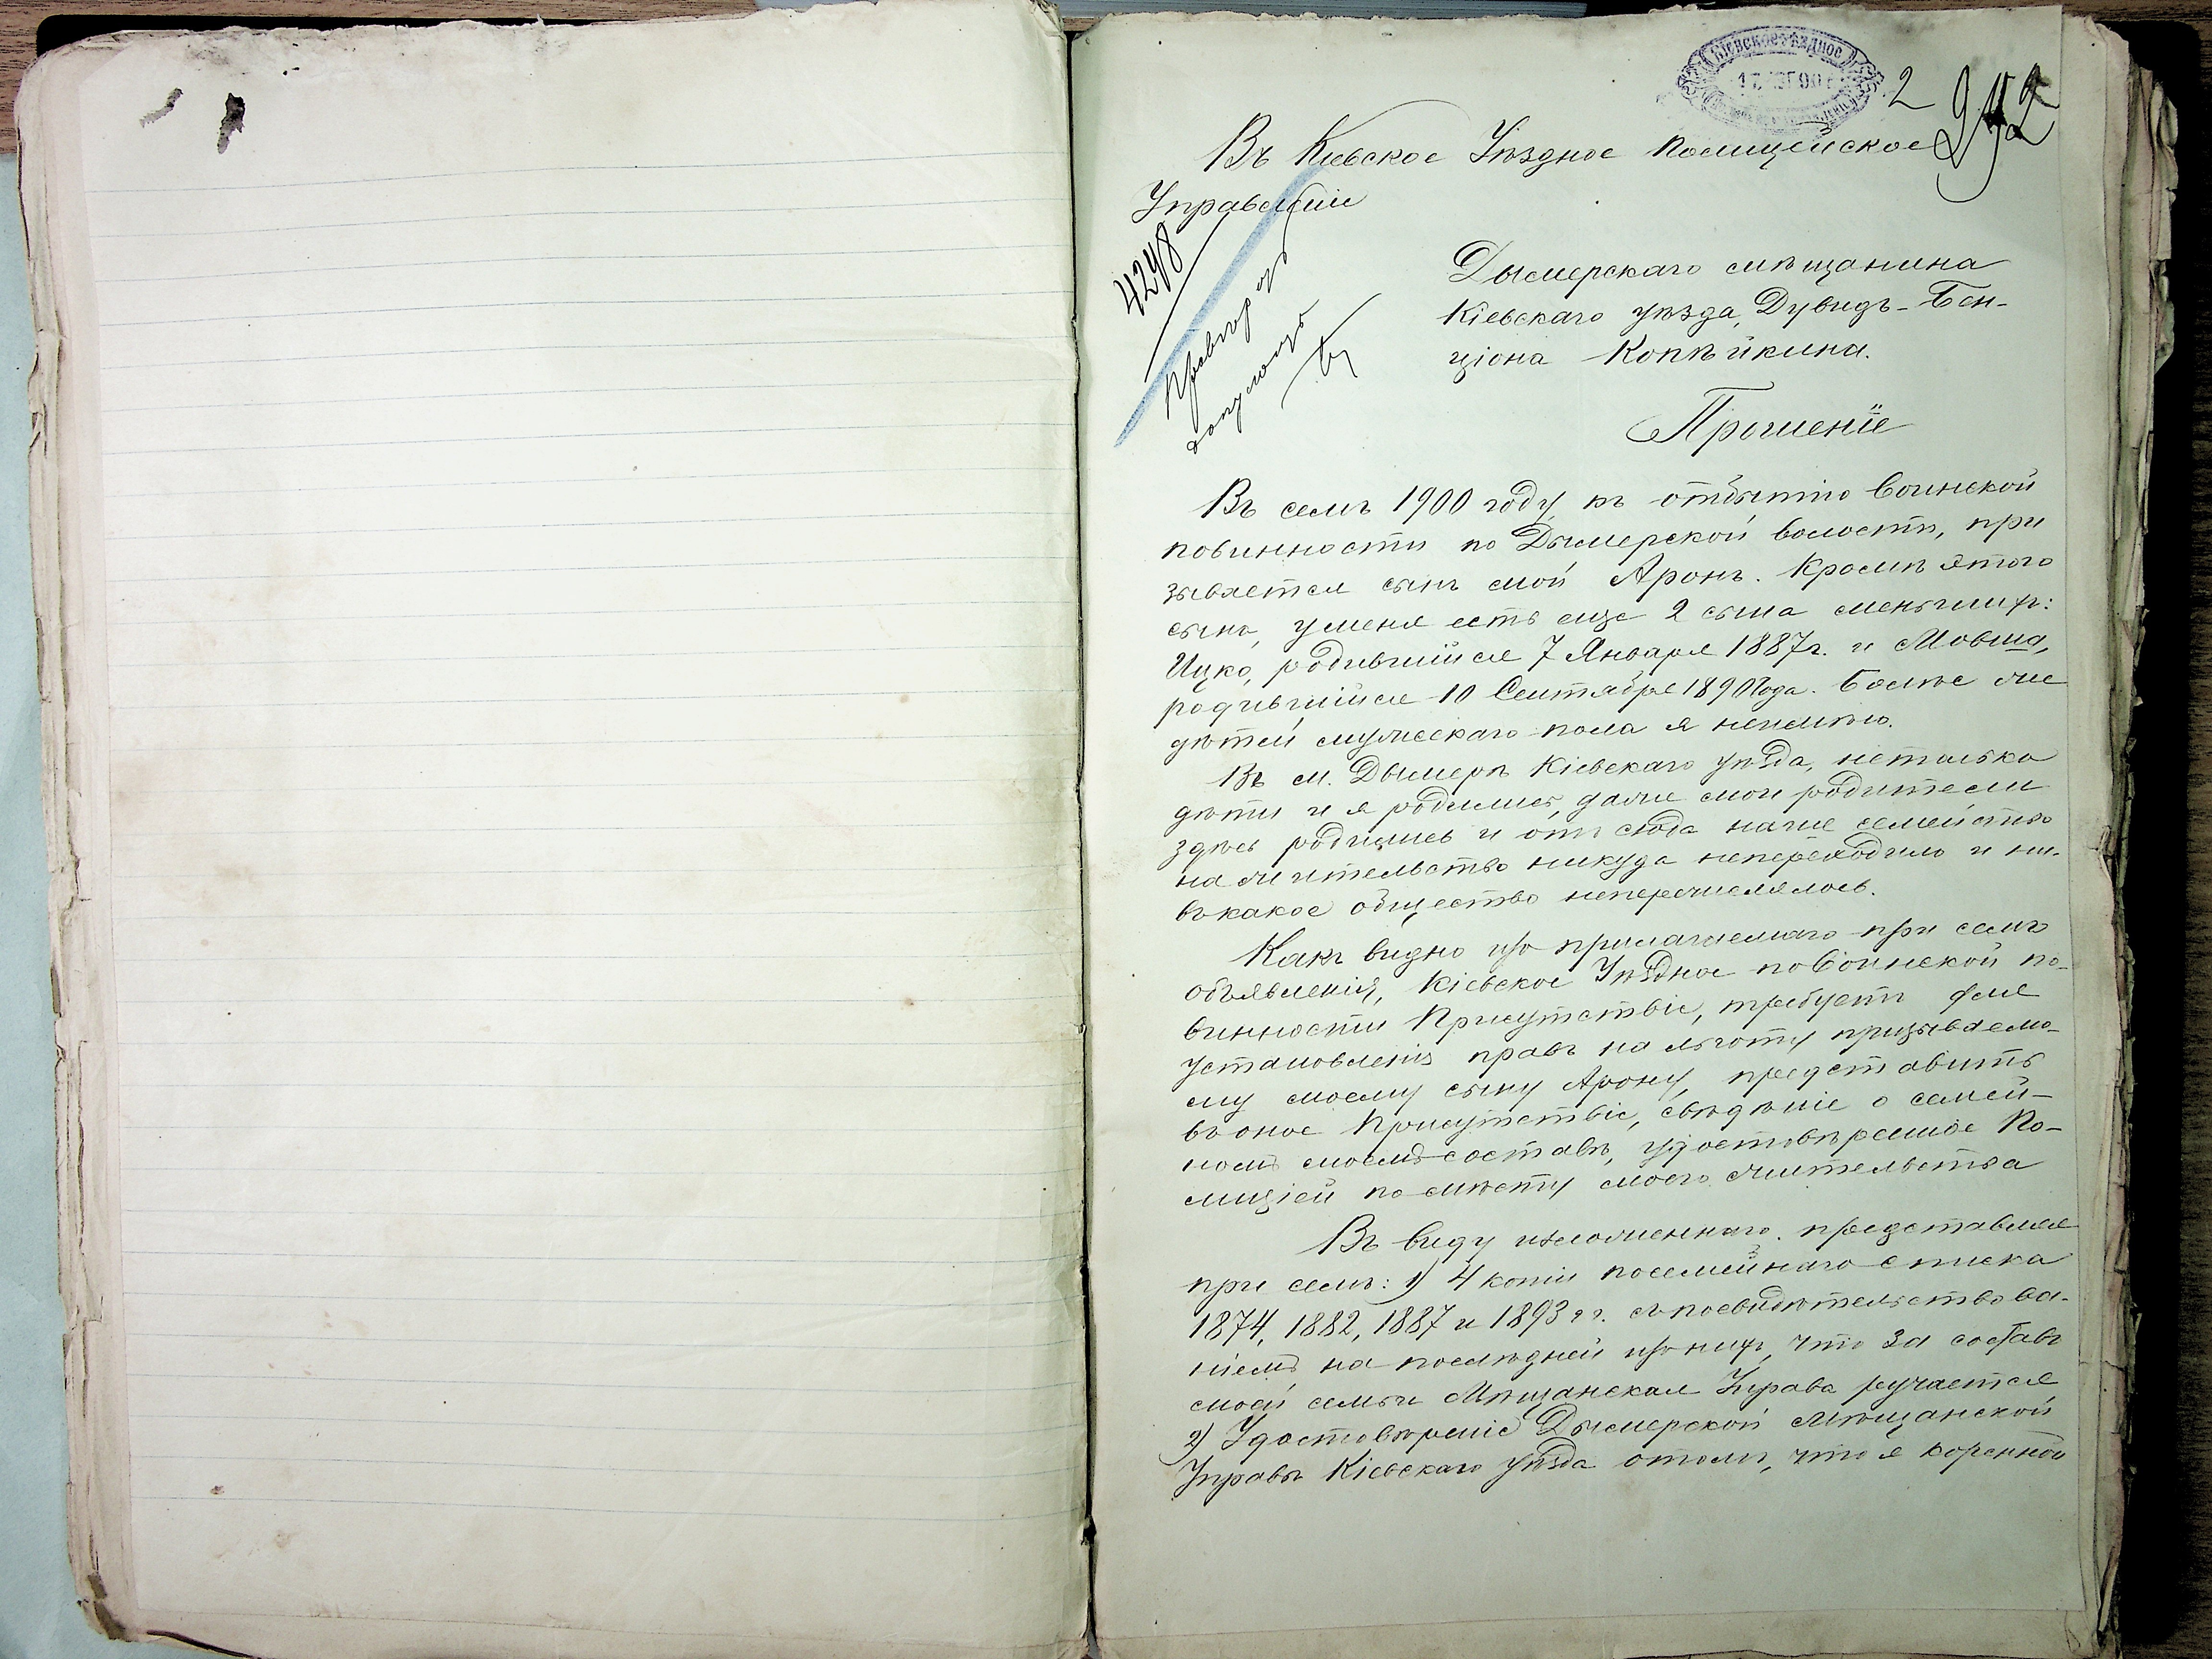 Кіевское уѣздное
2
2
Въ Кіевское Уѣздное Полицейское
Управленіе
4248
Дымерскаго мѣщанина
Кіевскаго уѣзда, Дувидъ-Бен-
ціона Копѣйкина.
Прошеніе
Въ семъ 1900 году, къ отбытію воинской
повинности по Дымерской волости, при
зывается сынъ мой Аронъ. Кромѣ этого
сына, у меня есть еще 2 сына меньшихъ:
Ицко, родившійся 7 Января 1887 г. и Мовша,
родившійся 10 Сентября 1890 года. Болѣе же
дѣтей мужескаго пола я неимѣю.
Въ м. Дымерѣ Кіевскаго уѣзда, нетолько
дѣти и я родились, даже мои родители
здѣсь родились и отъ сюда наше семейство
на жительство никуда непереходило и ни-
въ какое общество неперечислялось.
Какъ видно изъ прилагаемаго при семъ
объявленія, Кіевское Уѣздное по воинской по-
винности Присутствіе, требуетъ для
установленія правъ на льготу призываемо-
му моему сыну Арону, представить
въ оное Присутствіе, свѣдѣніе о семей-
номъ моемъ составѣ, удостовѣренное По-
лиціей по мѣсту моего жительства
Въ виду изложеннаго представляя
при семъ: 1) 4 копіи посемейнаго списка
1874, 1882, 1887 и 1893 г г. съ посвидѣтельствова-
ніемъ на послѣдней изъ нихъ, что за составъ
моей семьи Мѣщанская Управа ручается
2) Удостовѣреніе Дымерской Мѣщанской
Управы Кіевскаго уѣзда отомъ, что я коренной